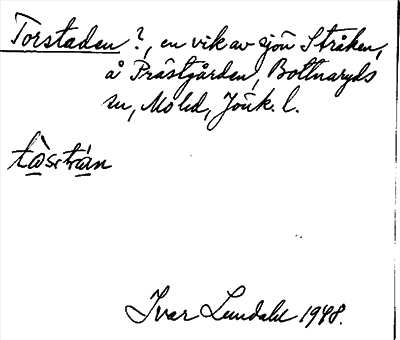 Torstaden ?, en vik av sjön Stråken,
å Prästgården, Bottnaryds
sn, Mo hd, Jönk. l.
tòstrán
Ivar Lundahl 1948.